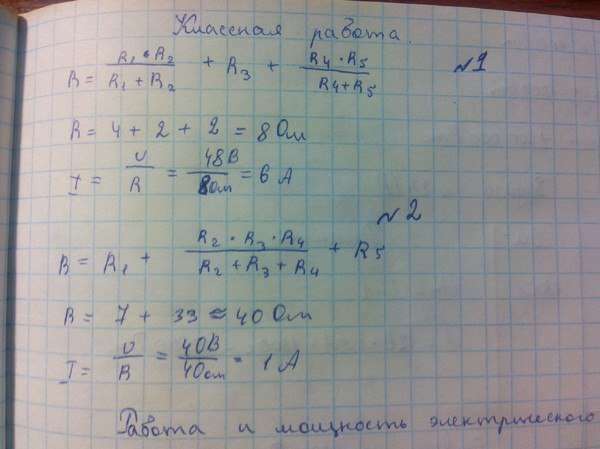 Классная работа.
R = R1 • R2 / R1 + R2 + R3 + R4 · R5 / R4 + R5 №1
R = 4 + 2 + 2 = 8 Ом
I = U / R = 48В / 8Ом = 6 А
№2
R = R1 + R2 · R3 · R4 / R2 + R3 + R4 + R5
R = 7 + 33 ≈ 40 Ом
I = U / R = 40В / 40Ом = 1 А
Работа и мощность электрического